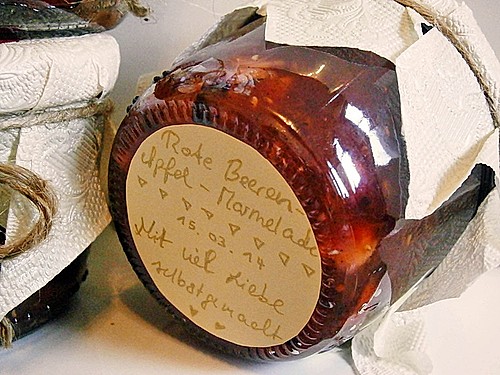 Rote Beeren-
Apfel - Marmelade
15.03.14
Mit viel Liebe
selbstgemacht